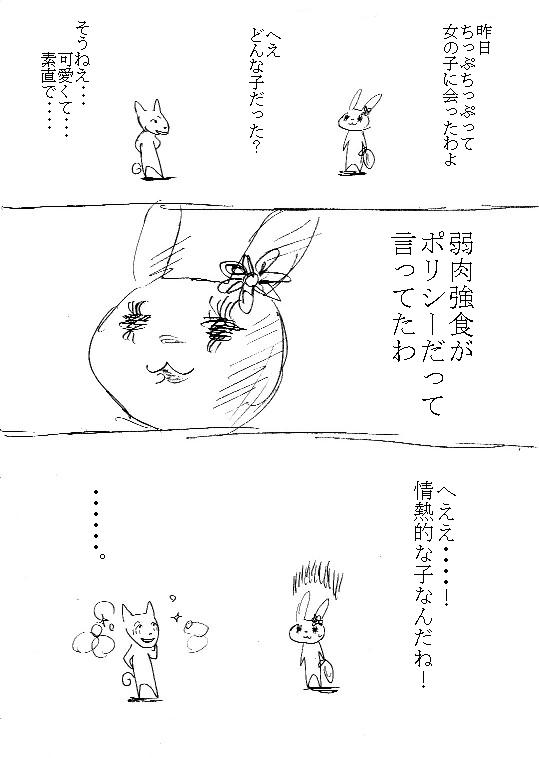 昨日
ちっぷちっぷって
女の子に会ったわよ
へえ
どんな子だった？
そうねえ・・・
可愛くて・・・
素直で・・・・
弱肉強食が
ポリシーだって
言ってたわ
へええ・・・・！
情熱的な子なんだね！
・・・・・・。